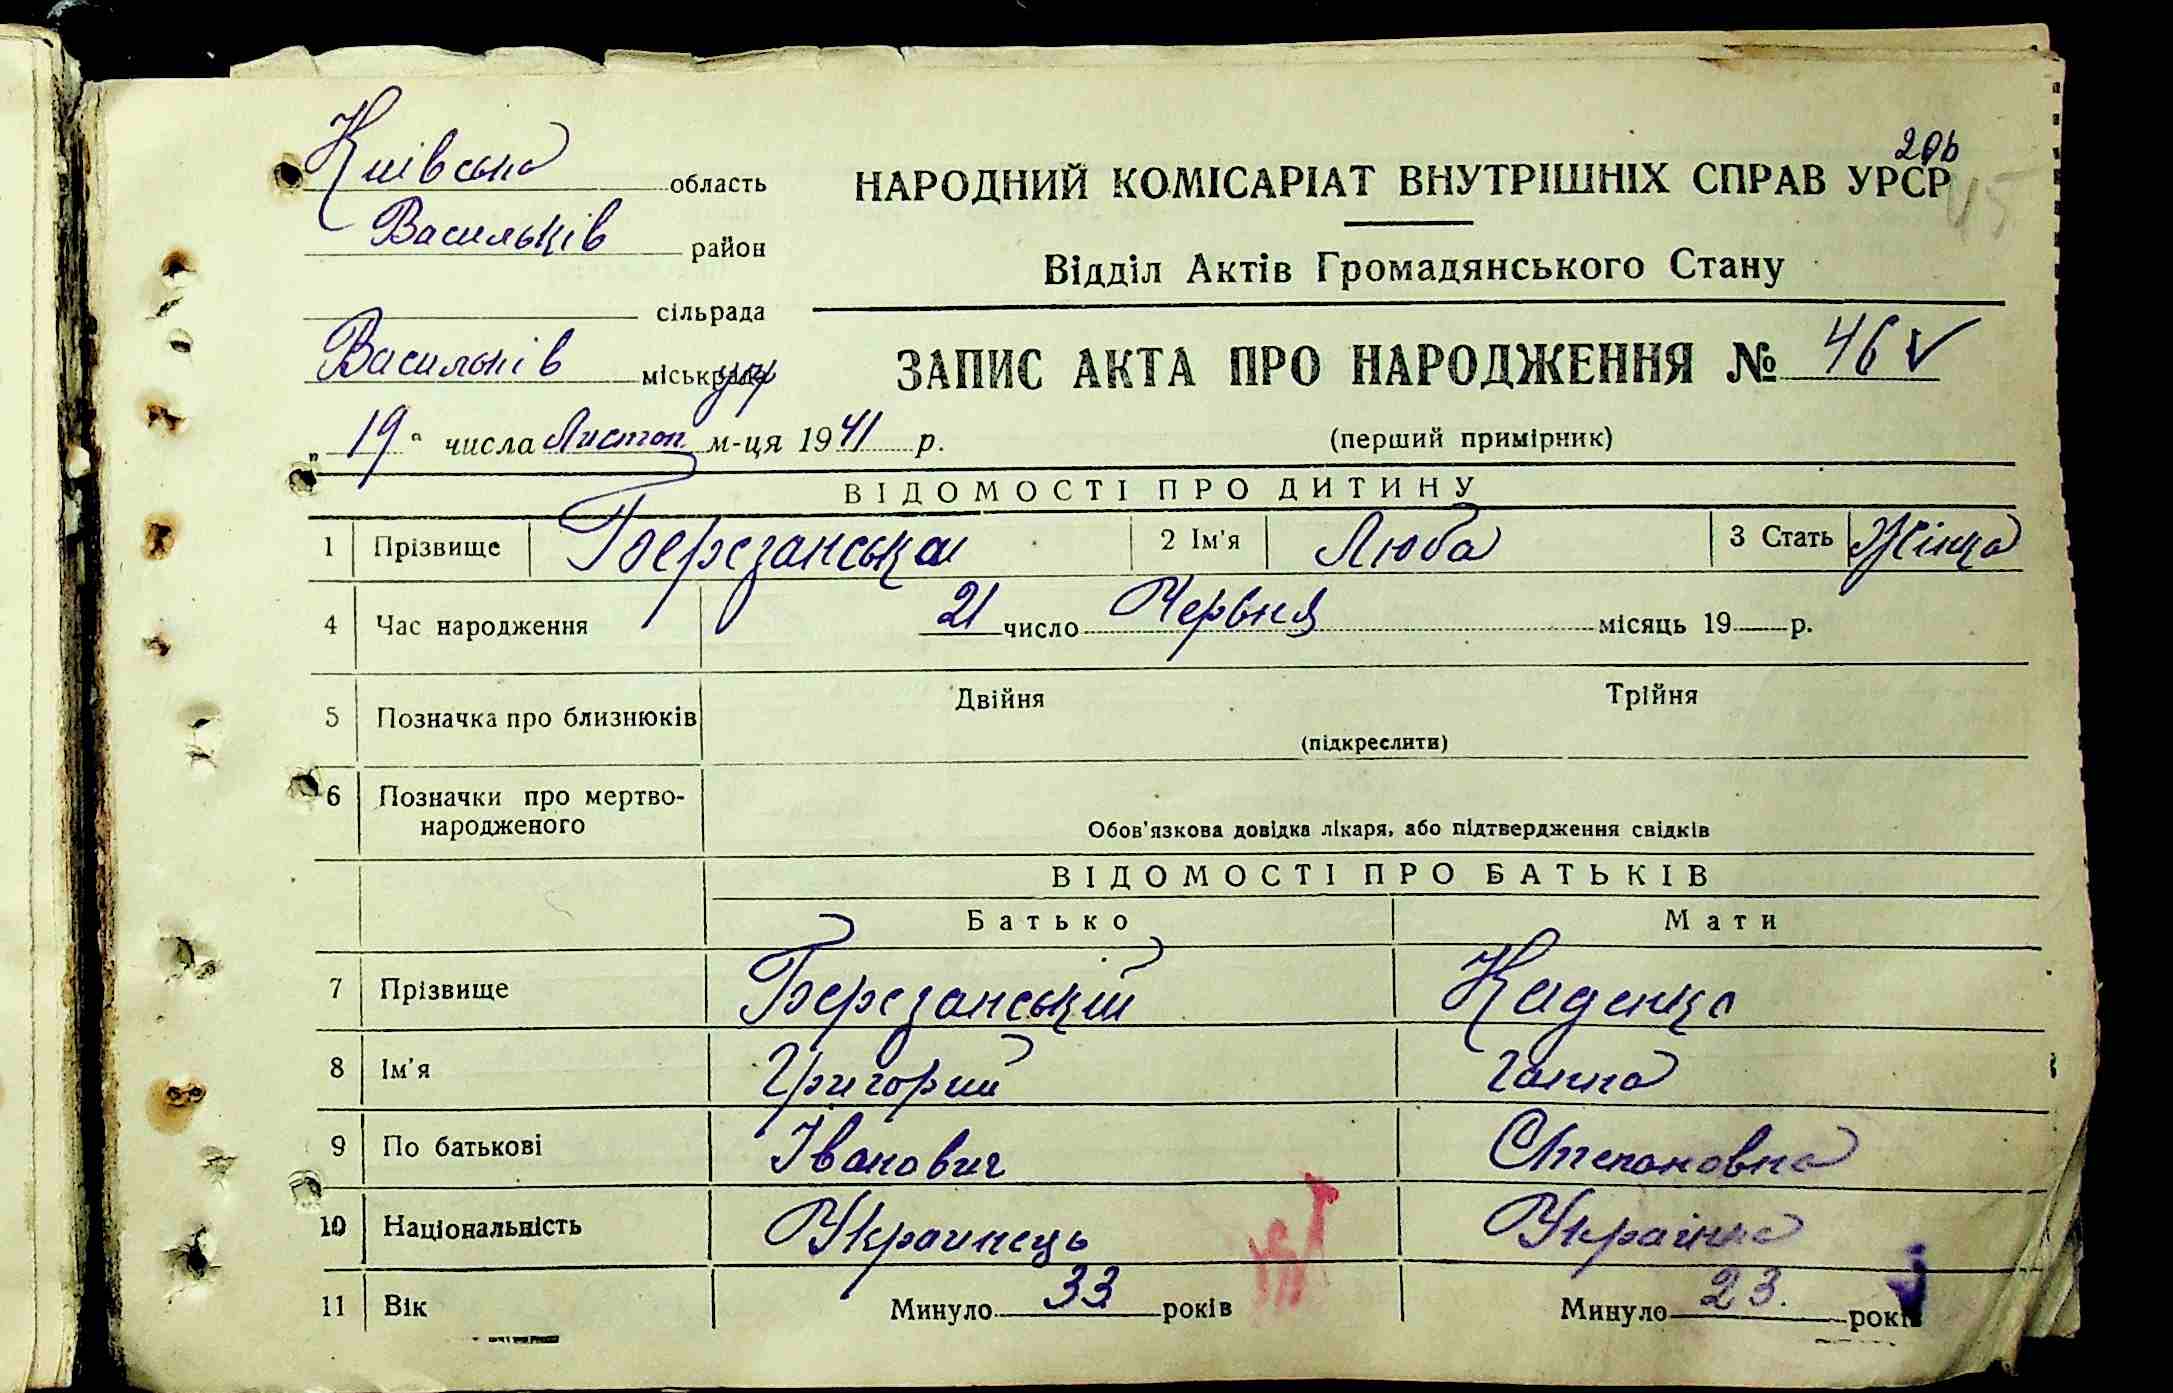 206
Київська область
НАРОДНИЙ КОМІСАРІАТ ВНУТРІШНІХ СПРАВ УРСР
Васильків район
Відділ Актів Громадянського Стану
сільрада
Васильків міськрада
ЗАПИС АКТА ПРО НАРОДЖЕННЯ № 46
„19“ числа Листоп. м-ця 1941 р.
(перший примірник)
ВІДОМОСТІ ПРО ДИТИНУ
1 Прізвище Березанська 2 Ім'я Люба 3 Стать Жінка
4 Час народження 21 число Червня місяць 19 р.
5 Позначка про близнюків Двійня Трійня
(підкреслити)
6 Позначки про мертво-
народженого
Обов'язкова довідка лікаря, або підтвердження свідків
ВІДОМОСТІ ПРО БАТЬКІВ
Батько Мати
7 Прізвище Березанський
8 Ім'я Григорий Ганна
9 По батькові Іванович Степановна
10 Національність Украинець Украінка
11 Вік Минуло 33 років Минуло 23. років